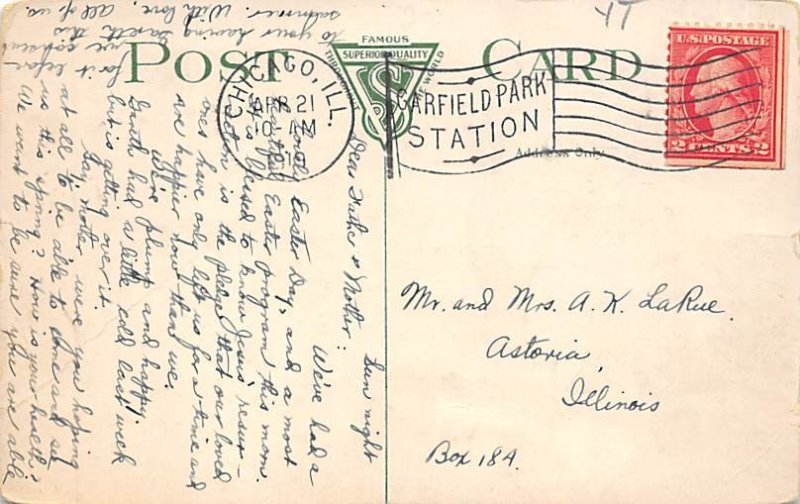 POST CARD
FAMOUS
SUPERIOR QUALITY
THROUGHOUT THE WORLD
S
CHICAGO, ILL.
APR 21
10 AM
1919
GARFIELD PARK
STATION
U.S. POSTAGE
2 CENTS 2
Address Only
Mr. and Mrs. A. K. LaRue.
Astoria,
Illinois
Box 184.
Sun night
Dear Father & Mother:
We've had a
lovely Easter Day, and a most
beautiful Easter program this morn.
It is blessed to know Jesus' resur-
rection is the pledge that our loved
ones have only left us for a time and
are happier now than we.
We're plump and happy.
Gareth had a little cold last week
but is getting over it.
Say, Mother, were you hoping
at all to be able to come and see
us this spring? How is your health?
We want to be sure you are able
for it before
we
to your having Gareth this
summer. With love, all of us.